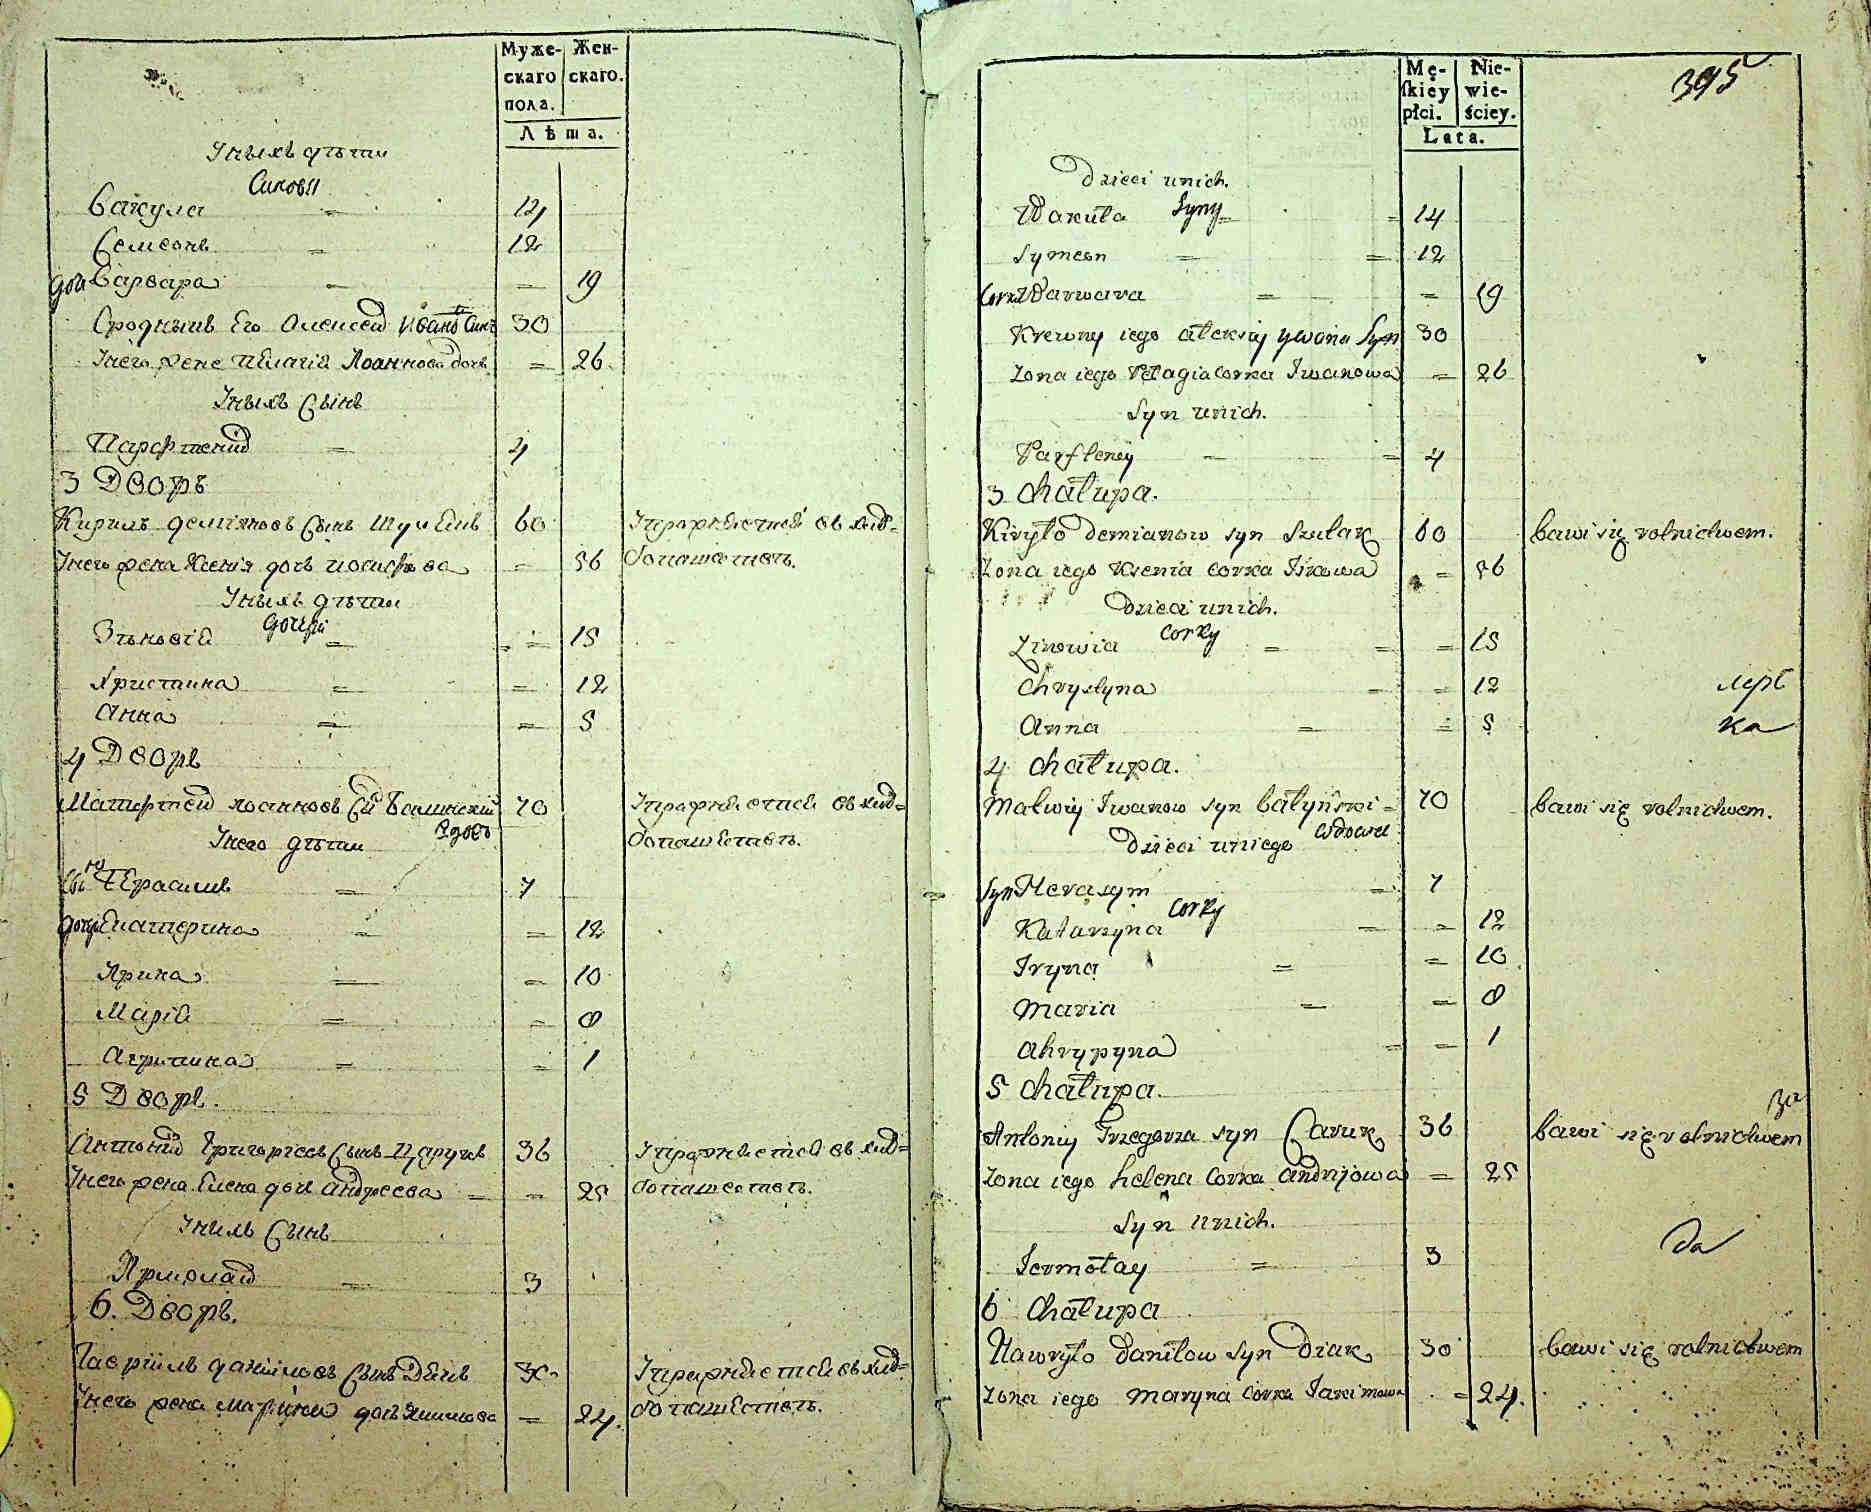 Муже-
скаго
пола.
Жен-
скаго.
Лѣта.
Унихъ дѣти
Синовя
Вакула = 14
Семеонъ = 12
доч Варвара = = 19
Сродныи Его Алексей Ивановъ Синъ 30
Унего жена Пелагия Иоаннова дочь = 26
Унихъ Сынъ
Парфтений = 4
3 Дворъ
Кирилъ демияновъ Сынъ Шулякъ 60 Упражняется въ хлѣ-
Унего жена Ксенія дочь иосифова = 56 бопашествѣ.
Унихъ дѣти
дочери
Зѣновія = = 15
Христина = = 12
Анна = = 5
4 Дворъ
Матфтей иоанновъ Сы Балинский 70 Упражняется въ хлѣ-
Унего дѣти вдовъ бопашествѣ.
Сынъ Герасимъ = 7
дочери Екатерина = = 12
Ярина = = 10
Марія = = 8
Агрипина = = 1
5 Дворъ.
Антоний Григориевъ Сынъ Царукъ 36 Упражняется въ хлѣ-
Унего жена Елена дочь Андреева = = 25 бопашествѣ.
Унихъ Сынъ
Ярмолай = 3
6. Дворъ.
Гавриилъ данииловъ Сынъ Дякъ 30 Упражняется въ хлѣ-
Унего жена марина дочь Якимова = 24. бопашествѣ.
Mę-
ſkiey
płci.
Nie-
wie-
ściey.
Lata.
395
Dzieci unich.
Wakuła Syny = = 14
Symeon = = 12
Corka Warwara = = 19
Krewny iego Aleksiy Ywana Syn 30
Zona iego Pełagia corka Iwanowa = 26
Syn unich.
Parfteney = = 4
3 Chałupa.
Kiryło demianow syn Szulak 60 bawi się rolnictwem.
Zona iego Ksenia corka Iskowa = 56
Dzieci unich.
Zinowia corky = = = 15
Chrystyna = = 12
Anna = = 5
4 Chałupa.
Matwiy Iwanow syn bałyński = 70 bawi się rolnictwem.
Dzieci uniego wdowu
Syn Herasym = 7
Katarzyna Corky = = 12
Iryna = = 10
Maria = = 8
Ahrypyna = = 1
5 Chałupa.
за
Antoniy Grzegorza syn Caruk 36 bawi się rolnictwem
Zona iego helena Corka Andrijowa = 25
Syn unich.
да
Iermołay = 3
6 Chałupa
Hawryło Daniłow syn Diak 30 bawi się rolnictwem
Zona iego Maryna corka Iakimowa = 24.